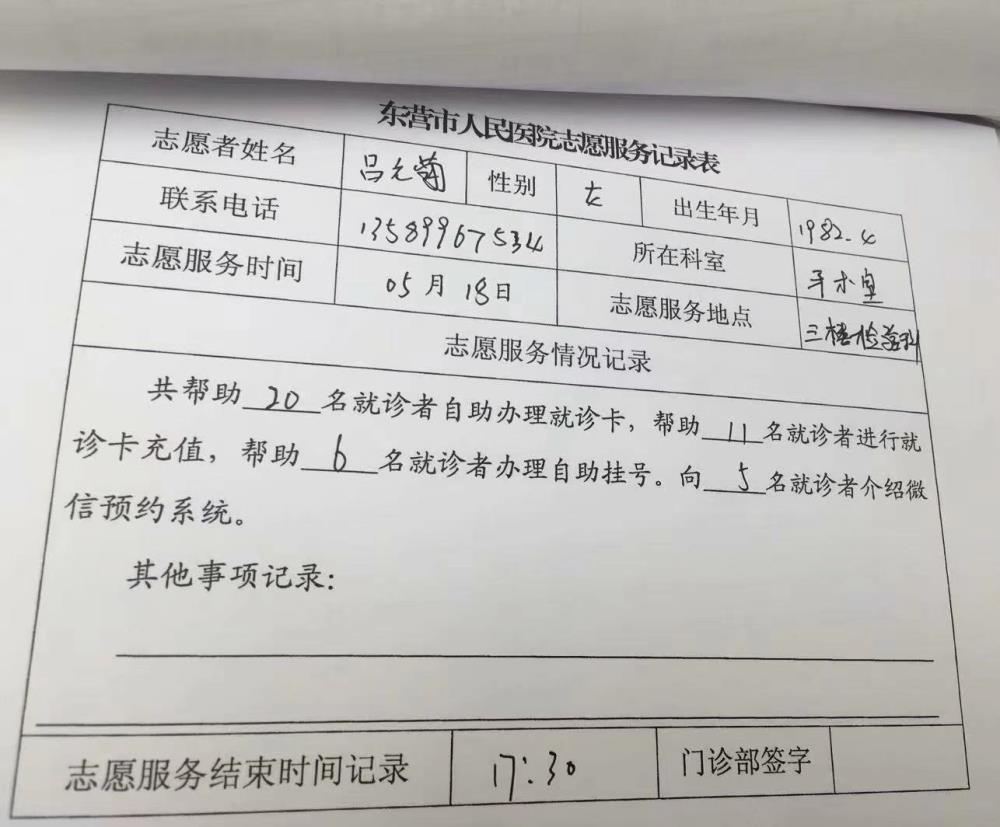 东营市人民医院志愿服务记录表
志愿者姓名 吕允菊 性别 女 出生年月 1982.4
联系电话 13589967534 所在科室 手术室
志愿服务时间 05月18日 志愿服务地点 三楼检验科
志愿服务情况记录
共帮助 20 名就诊者自助办理就诊卡，帮助 11 名就诊者进行就
诊卡充值，帮助 6 名就诊者办理自助挂号。向 5 名就诊者介绍微
信预约系统。
其他事项记录：
志愿服务结束时间记录 17:30 门诊部签字